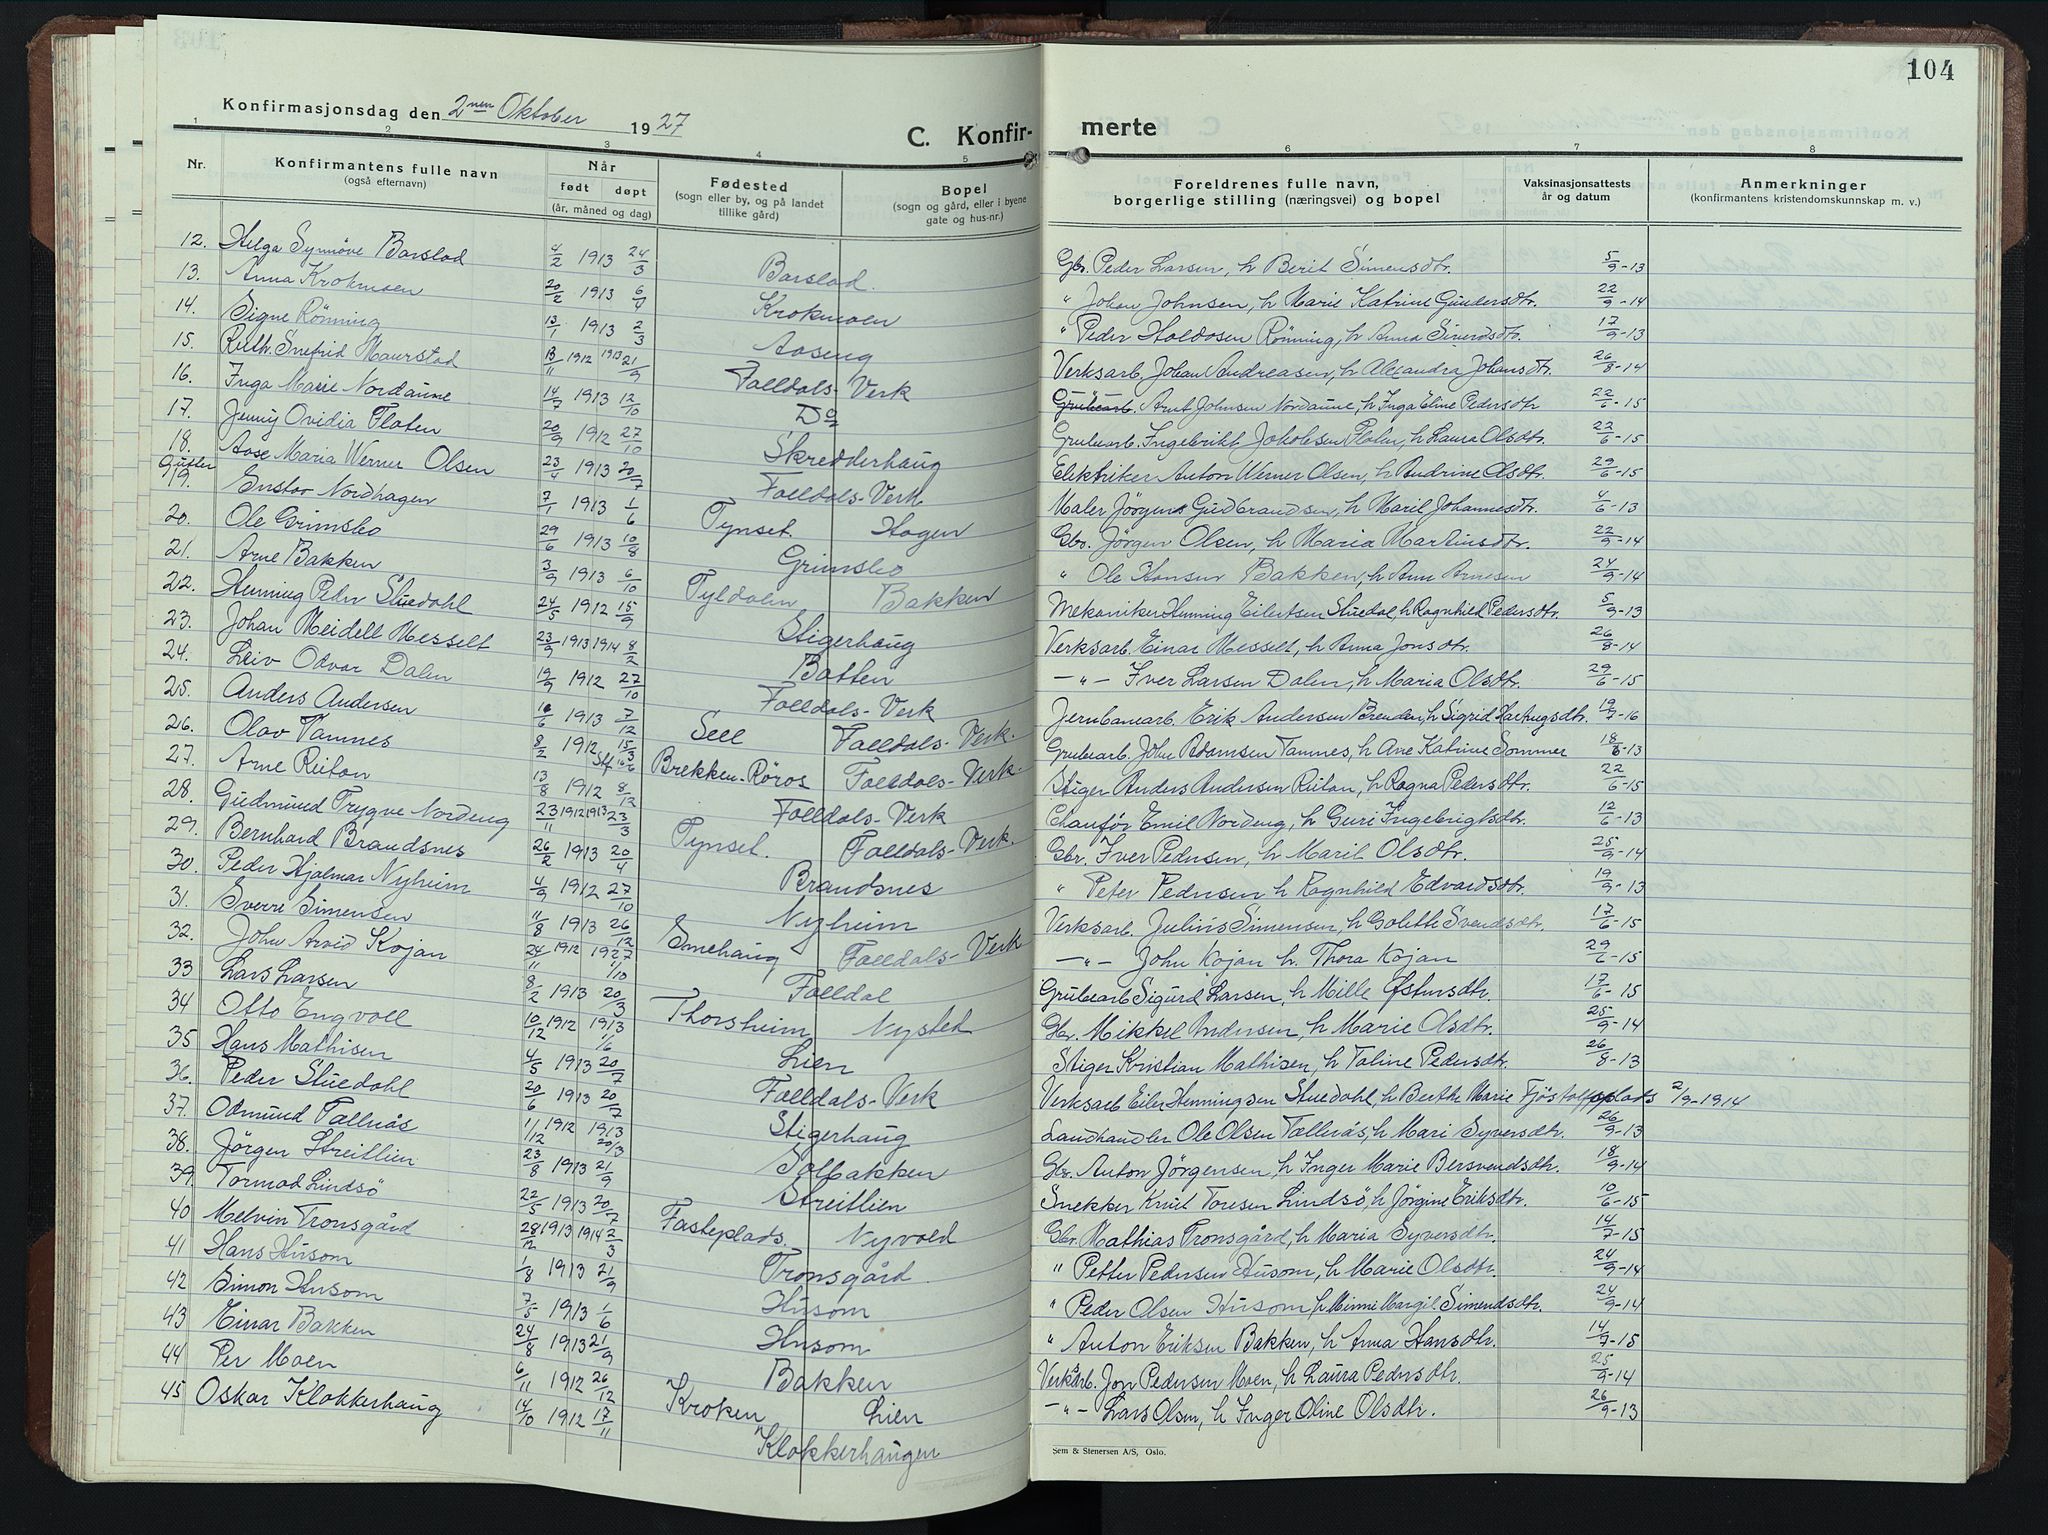 104
Konfirmasjonsdag den 2nen Oktober 1927
C. Konfir-
merte
1 2 3 4 5 6 7 8
Nr. Konfirmantens fulle navn (også efternavn) Når født døpt (år, måned og dag) Fødested (sogn eller by, og på landet tillike gård) Bopel (sogn og gård, eller i byene gate og hus-nr.) Foreldrenes fulle navn, borgerlige stilling (næringsvei) og bopel Vaksinasjonsattests år og datum Anmerkninger (konfirmantens kristendomskunnskap m. v.)
12. Helga Synnöve Barslad 4/2 1913 24/3 Barslad. Gbr. Peder Larsen, h Berit Simensdtr. 5/9-13
13. Anna Krokmoen 20/2 1913 6/4 Krokmoen " Johan Johnsen, h Marie Katrine Gundersdtr. 22/9-14
14. Signe Rönning 13/1 1913 2/3 Aaseng " Peder Haldosen Rönning, h Anna Siverdsdtr. 17/9-13
15. Ruth Snefrid Maurstad 13/11 1912 1913 21/9 Folldals-Verk Verksarb. Johan Andreasen, h Alexandra Johansdtr. 26/8-14
16. Inga Marie Nordaune 14/7 1913 12/10 Do Grubearb. Arnt Johnsen Nordaune, h Inga Eline Pedersdtr 22/6-15
17. Jenny Ovidia Floten 20/9 1912 27/10 Skredderhaug Grubearb. Ingebrikt Jakobsen Floten, h Laura Olsdtr. 22/6-15
18. Aase Maria Werner Olsen 23/4 1913 20/7 Folldals-Verk. Elektriker Anton Werner Olsen, h Andrine Olsdtr. 29/6-15
Gutter
19. Gustav Nordhagen 7/1 1913 1/6 Tynset. Hagen Maler Jörgen Gudbrandsen, h Marit Johannesdtr. 4/6-13
20. Ole Grimsbo 29/6 1913 10/8 Grimsbo Gbr. Jörgen Olsen, h Maria Martinsdtr. 22/9-14
21. Arne Bakken 3/9 1913 6/10 Tyldalen Bakken " Ole Hansen Bakken, h Ann Arnesen 24/9-14
22. Henning Peder Stuedahl 24/5 1912 15/9 Stigerhaug Mekaniker Henning Eilertsen Stuedal, h Ragnhild Pedersdtr. 5/9-13
23. Johan Meidell Messelt 23/9 1913 1914 8/2 Batten Verksarb. Einar Messelt, h Anna Jonsdtr. 26/8-14
24. Leiv Odvar Dalen 19/9 1912 27/10 Folldals-Verk -"- Iver Larsen Dalen, h Maria Olsdtr. 29/6-15
25. Anders Andersen 16/6 1913 7/12 Sell Folldals-Verk. Jernbanearb. Erik Andersen Brenden, h Sigrid Hartvigsdtr. 19/7-16
26. Olav Tamnes 8/2 1912 15/3 Brekken-Röros Folldals-Verk. Grubearb. John Adamsen Tamnes, h Ane Katrine Sommer 18/6-13
27. Arne Reitan 13/8 1912 8/12 Folldals-Verk Stiger Anders Andersen Reitan, h Ragna Pedersdtr. 22/6-15
28. Gudmund Trygve Nordeng 23/11 1912 1913 23/3 Tynset. Folldals-Verk. Chauför Emil Nordeng, h Guri Ingebrigtsdtr. 12/6-13
29. Bernhard Brandsnes 26/2 1913 20/4 Brandsnes Gbr. Iver Pedersen, h Marit Olsdtr. 25/9-14
30. Peder Hjalmar Nyheim 4/9 1912 27/10 Nyheim " Peter Pedersen h Ragnhild Edvardsdtr. 19/9-13
31. Sverre Simensen 11/8 1913 26/12 Smehaug Folldals-Verk Verksarb. Julius Simensen, h Goleth Svendsdtr. 17/6-15
32. John Arvid Kojan 24/11 1912 1927 1/10 Folldal -"- John Kojan h. Thora Kojan 29/6-15
33 Lars Larsen 8/2 1913 20/3 Thorsheim Nysted Grubearb Sigurd Larsen, h Mille Østensdtr. 17/6-15
34 Otto Engvoll 10/12 1912 1913 1/6 Lien Gbr. Mikkel Andersen, h Marie Olsdtr. 25/9-14
35 Hans Mathisen 4/5 1913 20/7 Folldals-Verk Stiger Kristian Mathisen, h Taline Pedersdtr. 26/8-13
36. Peder Stuedahl 20/6 1913 20/7 Stigerhaug Verksarb Eiler Henningsen Stuedahl, h Berthe Marie 2/9-1914
37. Odmund Tallerås 1/12 1912 1913 20/3 Solbakken Landhandler Ole Olsen Tællerås, h Mari Syversdtr. 26/9-13
38. Jörgen Streitlien 23/8 1913 21/9 Streitlien Gbr. Anton Jörgensen, h Inger Marie Bersvendsdtr. 18/9-14
39. Tormod Lindsö 22/5 1913 20/7 Fasteplads. Nyvold Snekker Knut Toresen Lindsö, h Jörgine Eriksdtr. 10/6-15
40 Melvin Tronsgård 28/12 1913 1914 2/3 Tronsgård Gbr. Mathias Tronsgård, h Maria Syversdtr. 14/7-15
41 Hans Husom 1/8 1913 21/9 Husom " Petter Pedersen Husom, h Marie Olsdtr. 24/9-14
42 Simon Husom 7/5 1913 1/6 Husom " Peder Olsen Husom, h Minni Margit Simensdtr. 24/9-14
43 Einar Bakken 24/8 1913 21/9 Bakken " Anton Eriksen Bakken, h Anna Hansdtr. 14/7-15
44 Per Moen 6/11 1912 26/12 Kroken Lien Verksarb. Jon Pedersen Moen, h Laura Pedersdtr. 25/9-14
45 Oskar Klokkerhaug 14/10 1912 17/11 Klokkerhaugen -"- Lars Olsen, h Inger Oline Olsdtr. 26/9-13
Sem & Stenersen A/S, Oslo.